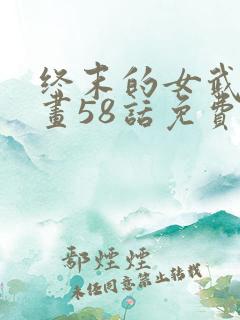 终末的女武
畫58話免費
鄢煙煙
未经同意禁止转载